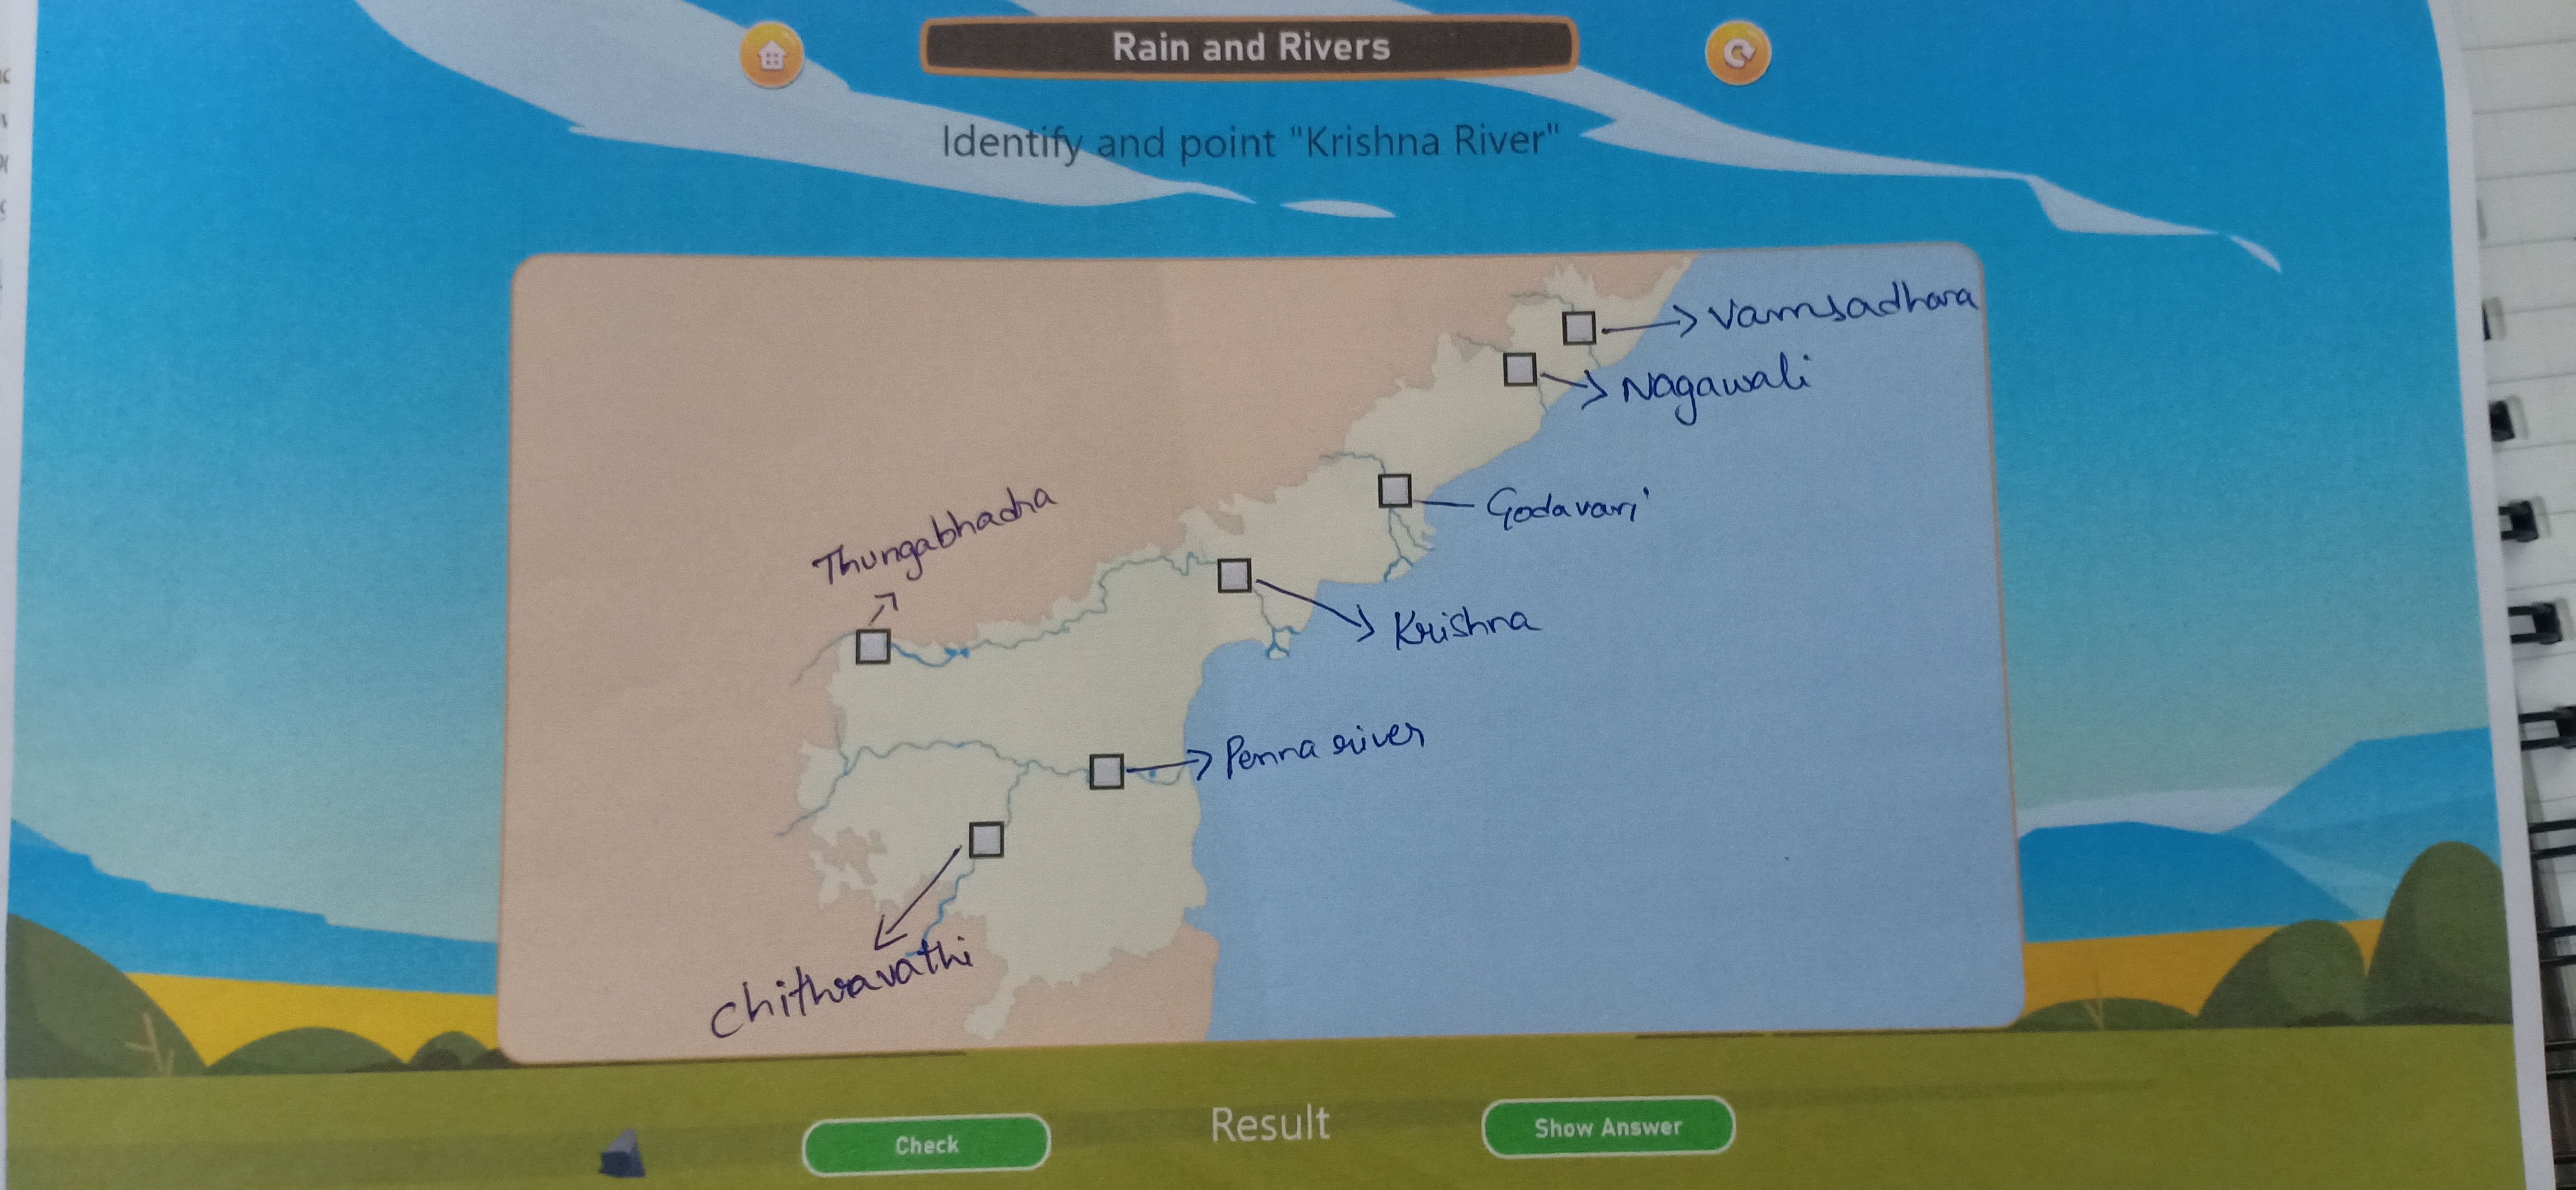 Rain and Rivers
Identify and point "Krishna River"
Vamsadhara
Nagawali
Godavari
Thungabhadra
Krishna
Penna river
Chithravathi
Result
Check
Show Answer